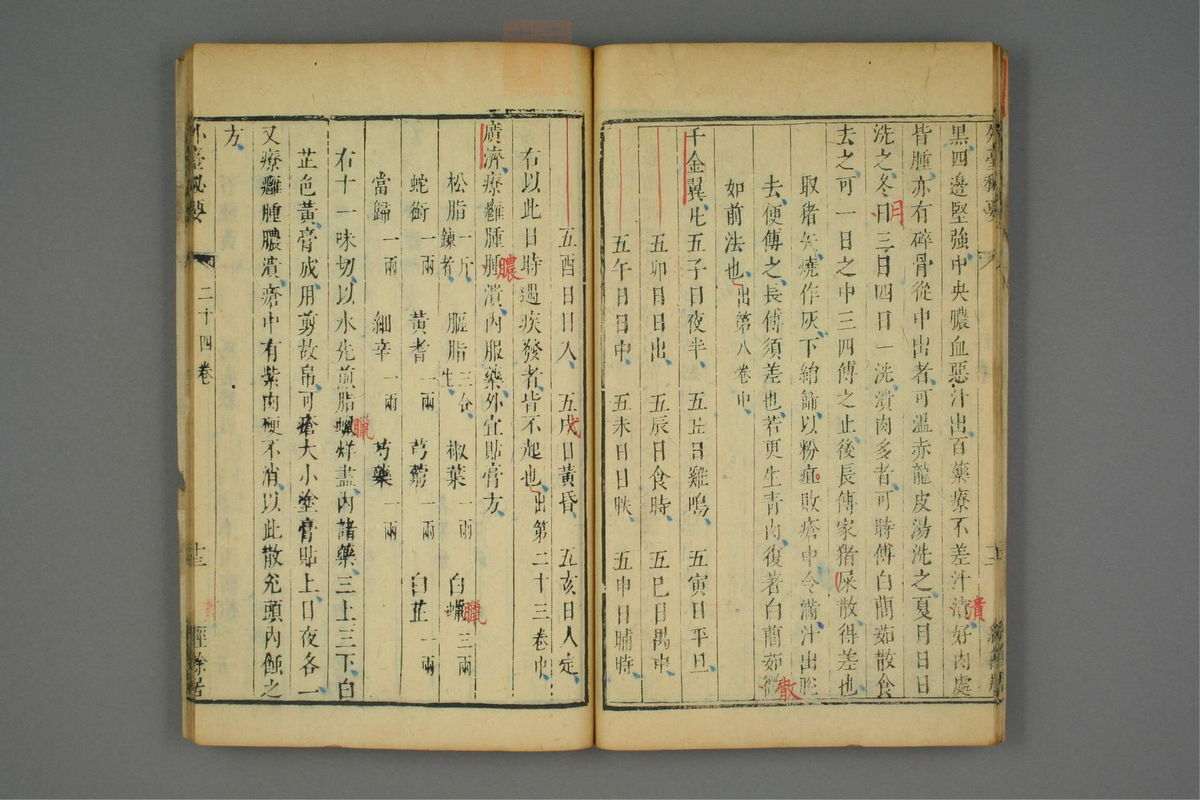 黑四邊堅強中央膿血惡汁出百藥療不差汁清好肉處
皆腫亦有碎骨從中出者可溫赤龍皮湯洗之夏月日日
洗之冬日三日四日一洗潰肉多者可時傅白䕡茹散食
去之可一日之中三四傅之止後長傅家猪屎散得差也
取猪矢燒作灰下絹篩以粉瘡敗瘡中令滿汁出脫
去便傅之長傅須差也若更生青肉復著白䕡茹
如前法也出第八卷中
千金翼凡五子日夜半 五丑日雞鳴 五寅日平旦
五卯日日出 五辰日食時 五巳日禺中
五午日日中 五未日日昳 五申日晡時
五酉日日入 五戌日黃昏 五亥日人定
右以此日時遇疾發者皆不起也出第二十三卷中
廣濟療癰腫腫潰內服藥外宜貼膏方
松脂一斤鍊者 䐁脂三合生 椒葉一兩 白蠟三兩
蛇銜一兩 黃耆一兩 芎藭一兩 白芷一兩
當歸一兩 細辛一兩 芍藥一兩
右十一味切以水先煎脂蠟烊盡內諸藥三上三下白
芷色黃膏成用剪故帛可瘡大小塗膏貼上日夜各一
又療癰腫膿潰瘡中有紫肉硬不消以此散兊頭內蝕之
方
外臺秘要
二十四卷
十二
十三
經餘居
月
潰
散
膿
戌
臘
臘